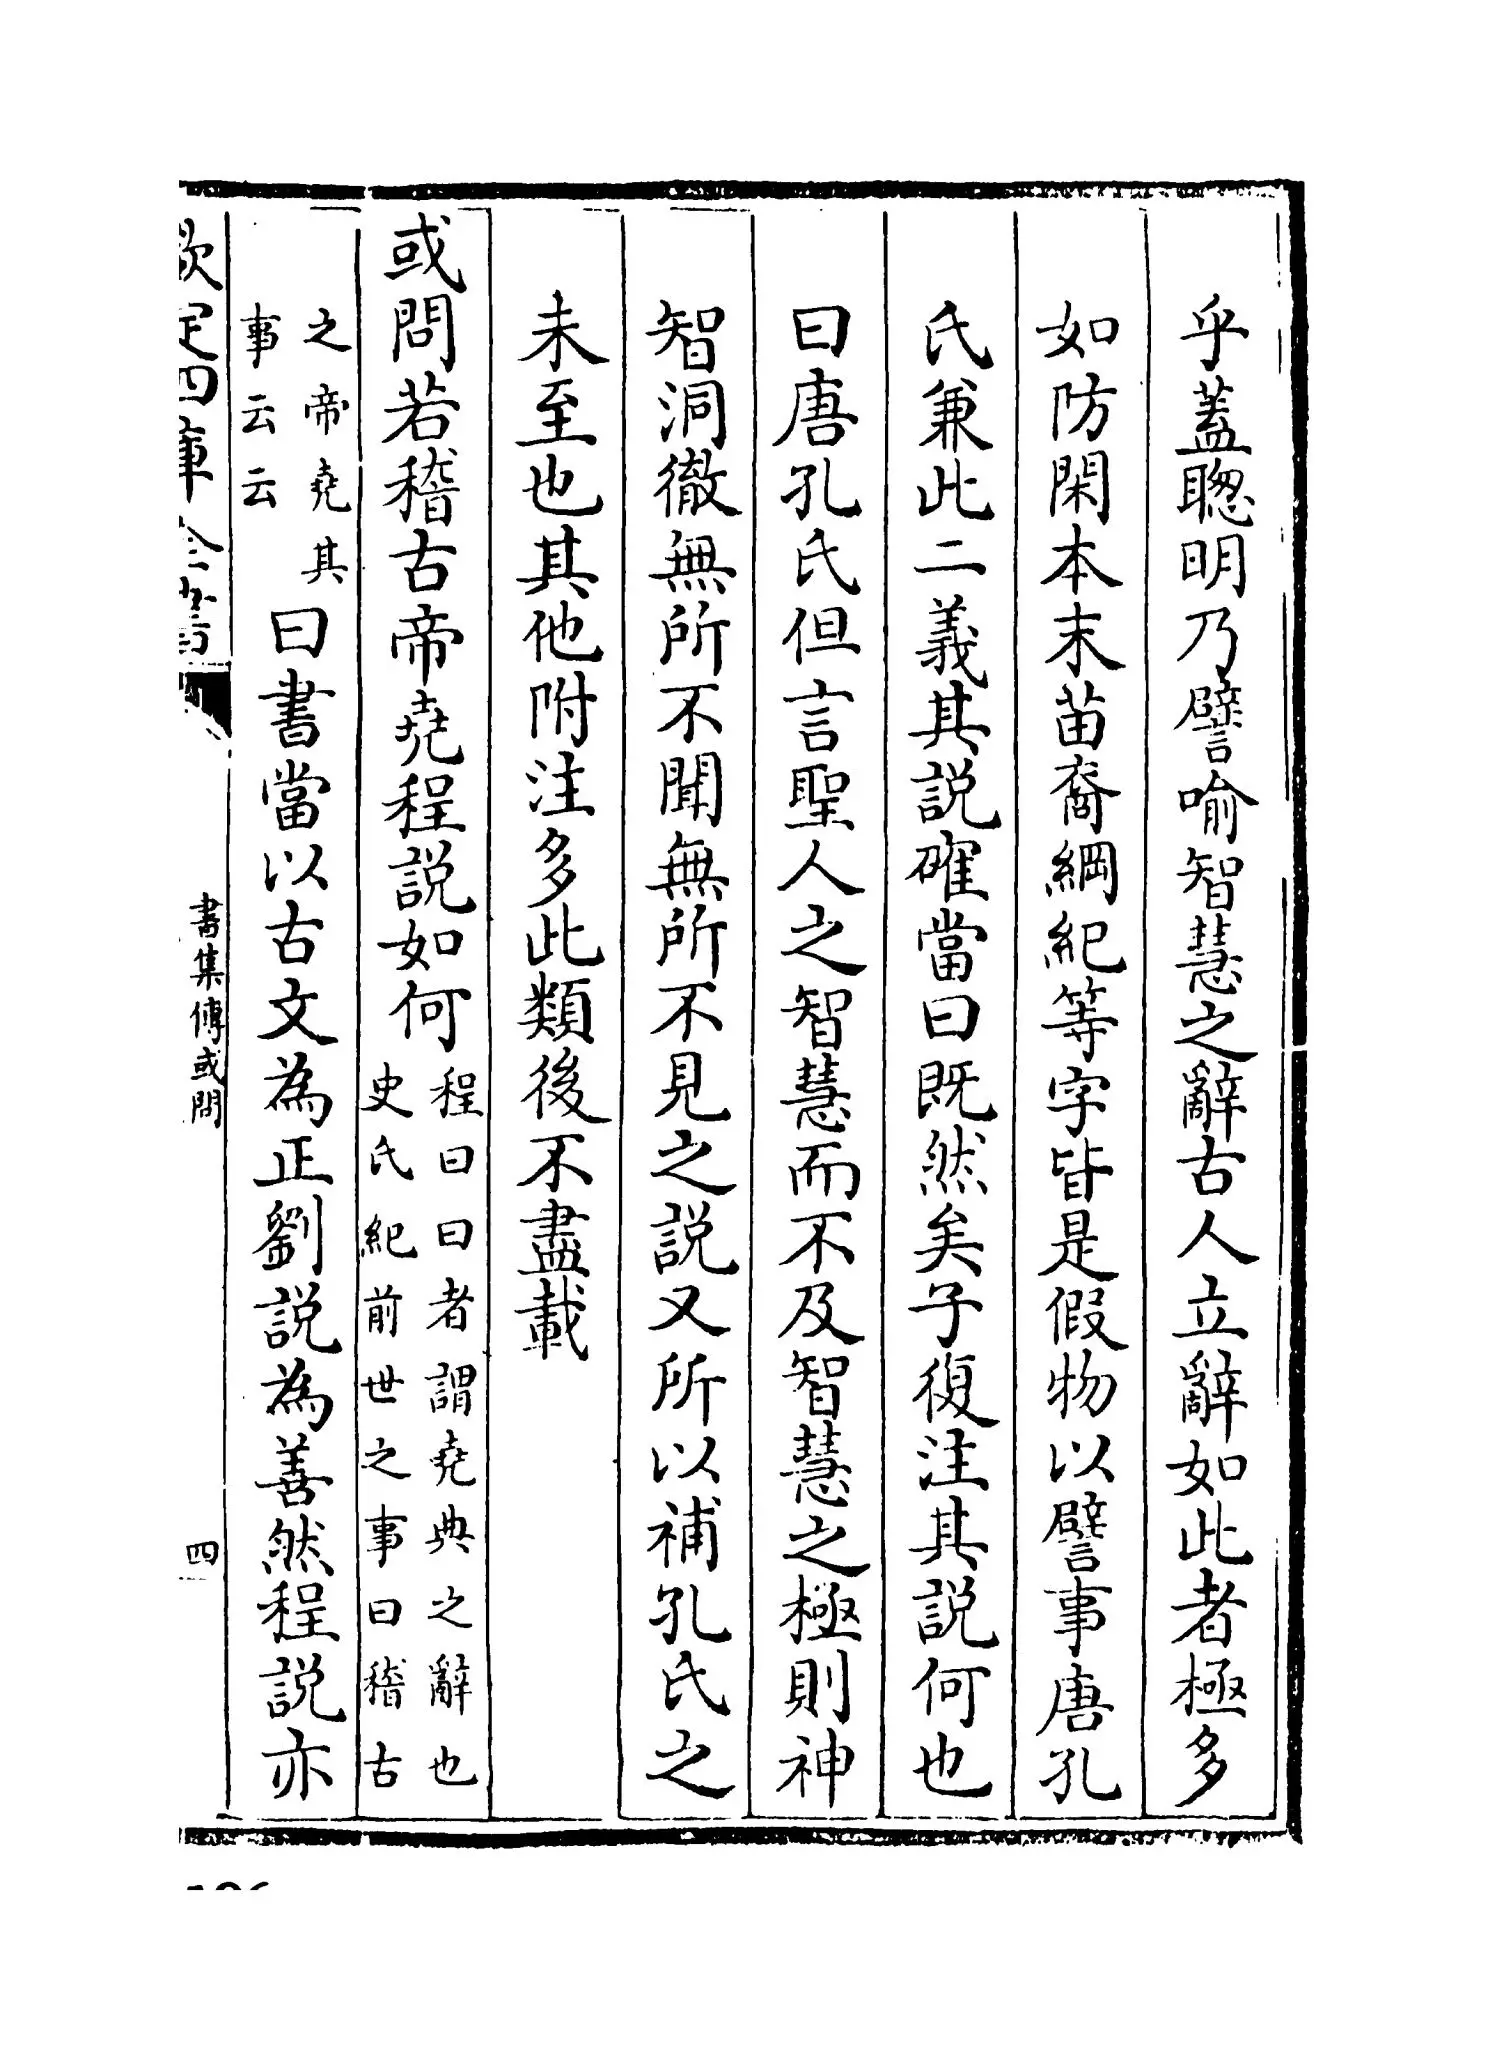 乎蓋聰明乃譬喻智慧之辭古人立辭如此者極多
如防閑本末苗裔綱紀等字皆是假物以譬事唐孔
氏兼此二義其説確當曰既然矣子復注其説何也
曰唐孔氏但言聖人之智慧而不及智慧之極則神
智洞徹無所不聞無所不見之説又所以補孔氏之
未至也其他附注多此類後不盡載
或問若稽古帝堯程説如何
程曰曰者謂堯典之辭也
史氏紀前世之事曰稽古
之帝堯其
事云云
曰書當以古文為正劉説為善然程説亦
欽定四庫全書
書集傳或問
四